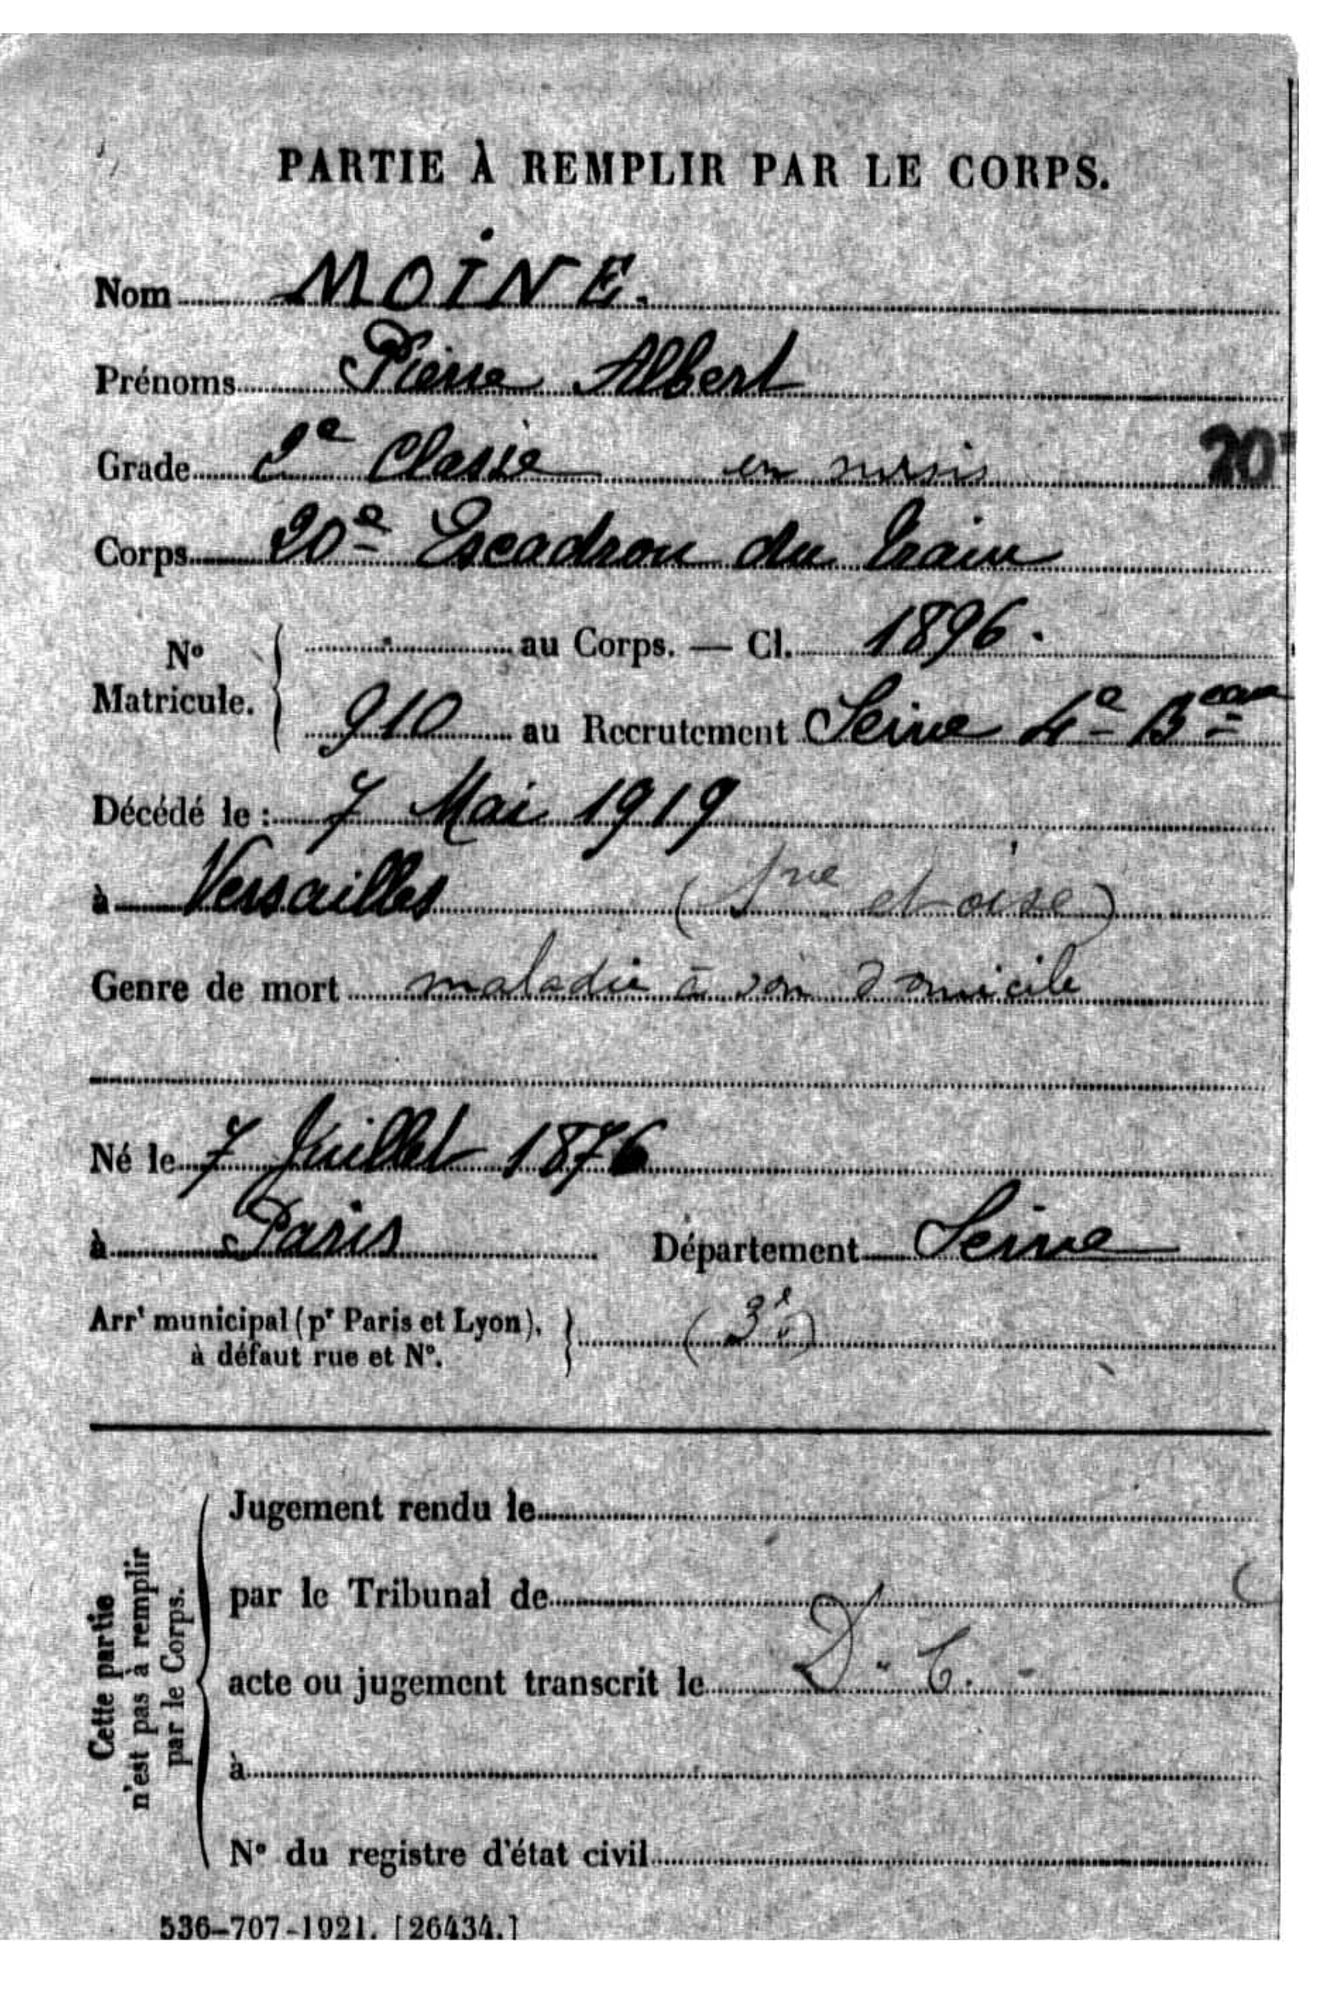 PARTIE À REMPLIR PAR LE CORPS.
Nom MOINE.
Prénoms Pierre Albert
Grade 2e Classe en sursis 20
Corps 20e Escadron du Train
No Matricule. au Corps. — Cl. 1896.
910 au Recrutement Seine 4e Beau
Décédé le : 7 Mai 1919
à Versailles (Sne et oise)
Genre de mort maladie à son domicile
Né le 7 Juillet 1876
à Paris Département Seine
Arrt municipal (pr Paris et Lyon), (3e)
à défaut rue et No.
Cette partie n'est pas à remplir par le Corps.
Jugement rendu le
par le Tribunal de
acte ou jugement transcrit le D. C.
à
No du registre d'état civil
536-707-1921. [26434.]